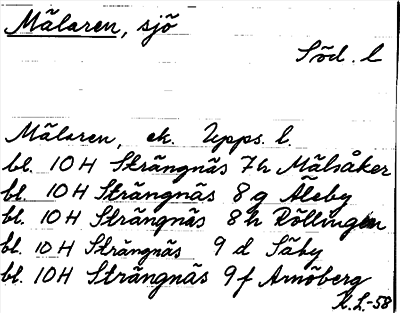 Mälaren, sjö
Söd. l
Mälaren, ek. Upps. l.
bl. 10 H Strängnäs 7h Mälsåker
bl. 10 H Strängnäs 8g Aleby
bl. 10 H Strängnäs 8h Röllingen
bl. 10 H Strängnäs 9d Säby
bl. 10 H Strängnäs 9f Arnöberg
K.L.-58